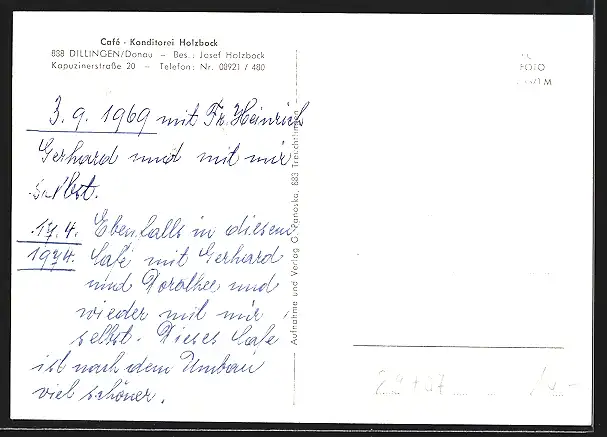 Café - Konditorei Holzbock
888 DILLINGEN/Donau — Bes.: Josef Holzbock
Kapuzinerstraße 20 — Telefon: Nr. 08921 / 480
3. 9. 1969 mit Fr. Heinrich
Gerhard und mit mir
selbst.
17. 4. Ebenfalls in diesem
1974. Cafe mit Gerhard
und Dorothee und
wieder mit mir
selbst. Dieses Cafe
ist nach dem Umbau
viel schöner.
Aufnahme und Verlag G. Panoska, 883 Treuchtlingen
FOTO